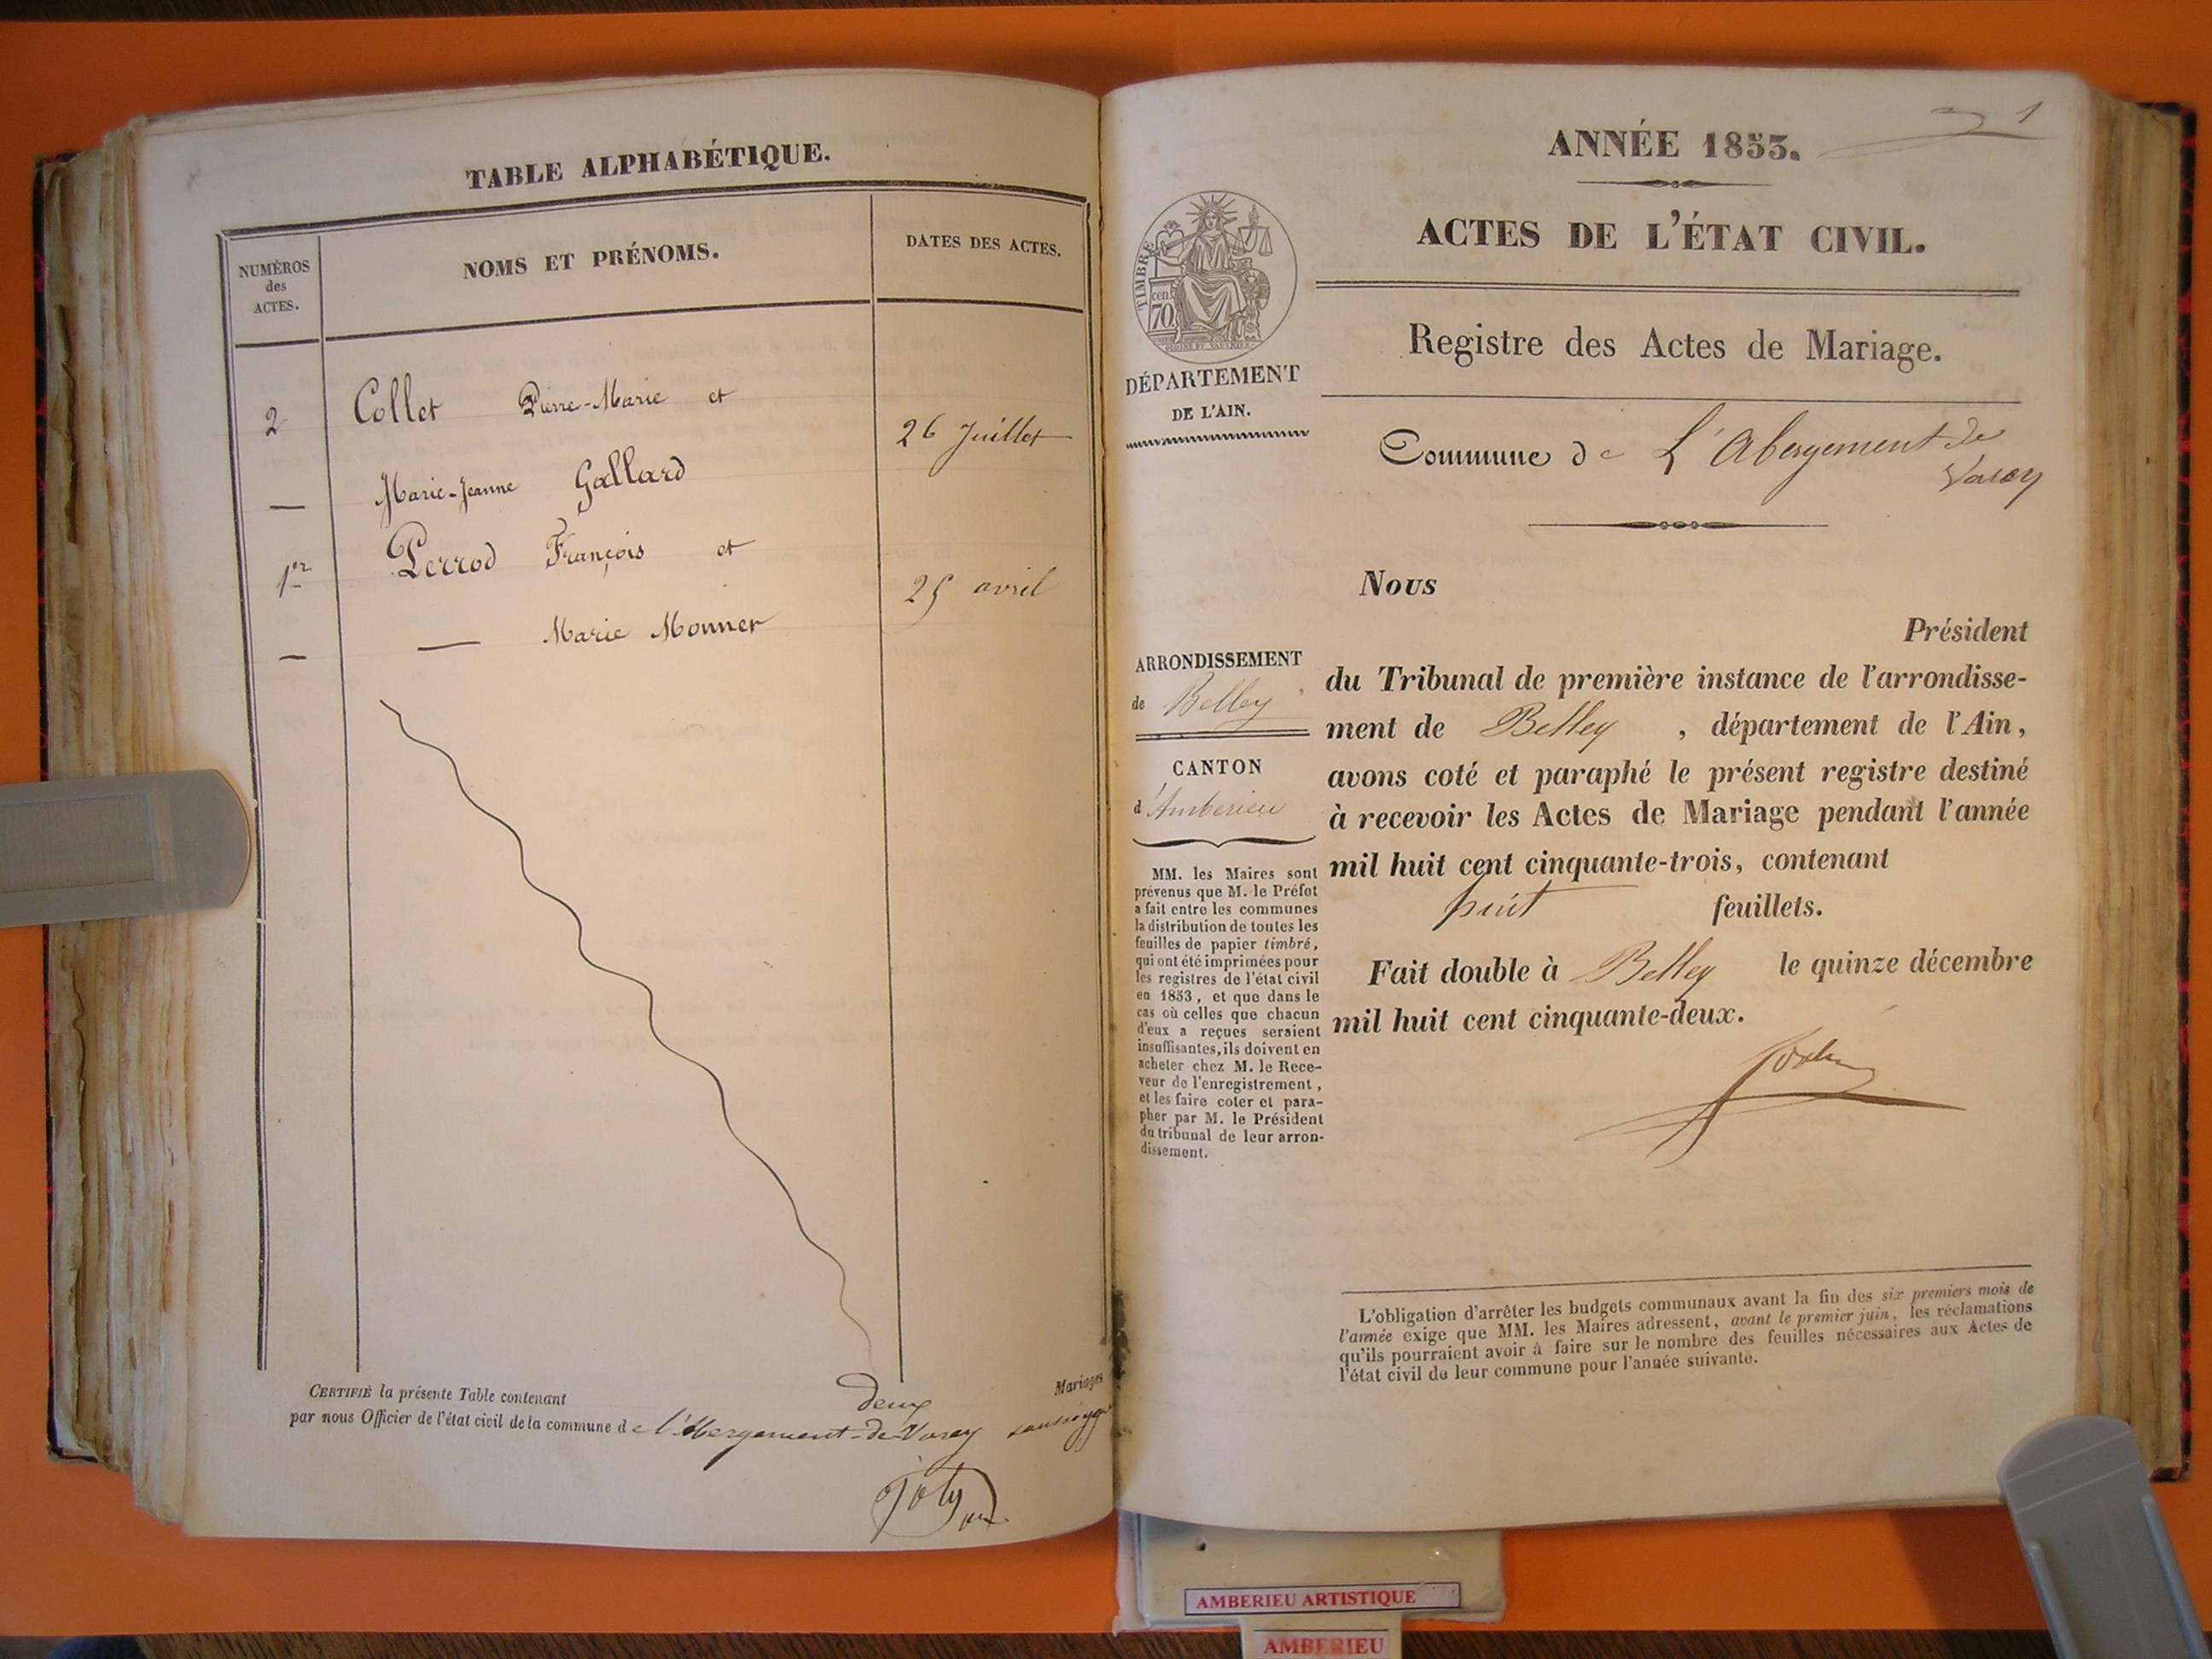 TABLE ALPHABÉTIQUE.
NUMÉROS
des
ACTES.
NOMS ET PRÉNOMS.
DATES DES ACTES.
2 Collet Pierre-Marie et
26 Juillet
— Marie-Jeanne Gallard
1er Perrod François et
25 avril
— — Marie Monner
CERTIFIÉ la présente Table contenant deux Mariages
par nous Officier de l'état civil de la commune de l'Abergement-de-Varey soussigné
Joly
ANNÉE 1853.
1
ACTES DE L'ÉTAT CIVIL.
TIMBRE
cen.
70
DÉPARTEMENT
DE L'AIN.
Registre des Actes de Mariage.
Commune de L'Abergement de
Varey
ARRONDISSEMENT
de Belley
CANTON
d'Amberieu
MM. les Maires sont
prévenus que M. le Préfet
a fait entre les communes
la distribution de toutes les
feuilles de papier timbré,
qui ont été imprimées pour
les registres de l'état civil
en 1853, et que dans le
cas où celles que chacun
d'eux a reçues seraient
insuffisantes, ils doivent en
acheter chez M. le Rece-
veur de l'enregistrement,
et les faire coter et para-
pher par M. le Président
du tribunal de leur arron-
dissement.
Nous
Président
du Tribunal de première instance de l'arrondisse-
ment de Belley, département de l'Ain,
avons coté et paraphé le présent registre destiné
à recevoir les Actes de Mariage pendant l'année
mil huit cent cinquante-trois, contenant
huit feuillets.
Fait double à Belley le quinze décembre
mil huit cent cinquante-deux.
L'obligation d'arrêter les budgets communaux avant la fin des six premiers mois de
l'année exige que MM. les Maires adressent, avant le premier juin, les réclamations
qu'ils pourraient avoir à faire sur le nombre des feuilles nécessaires aux Actes de
l'état civil de leur commune pour l'année suivante.
AMBERIEU ARTISTIQUE
AMBERIEU